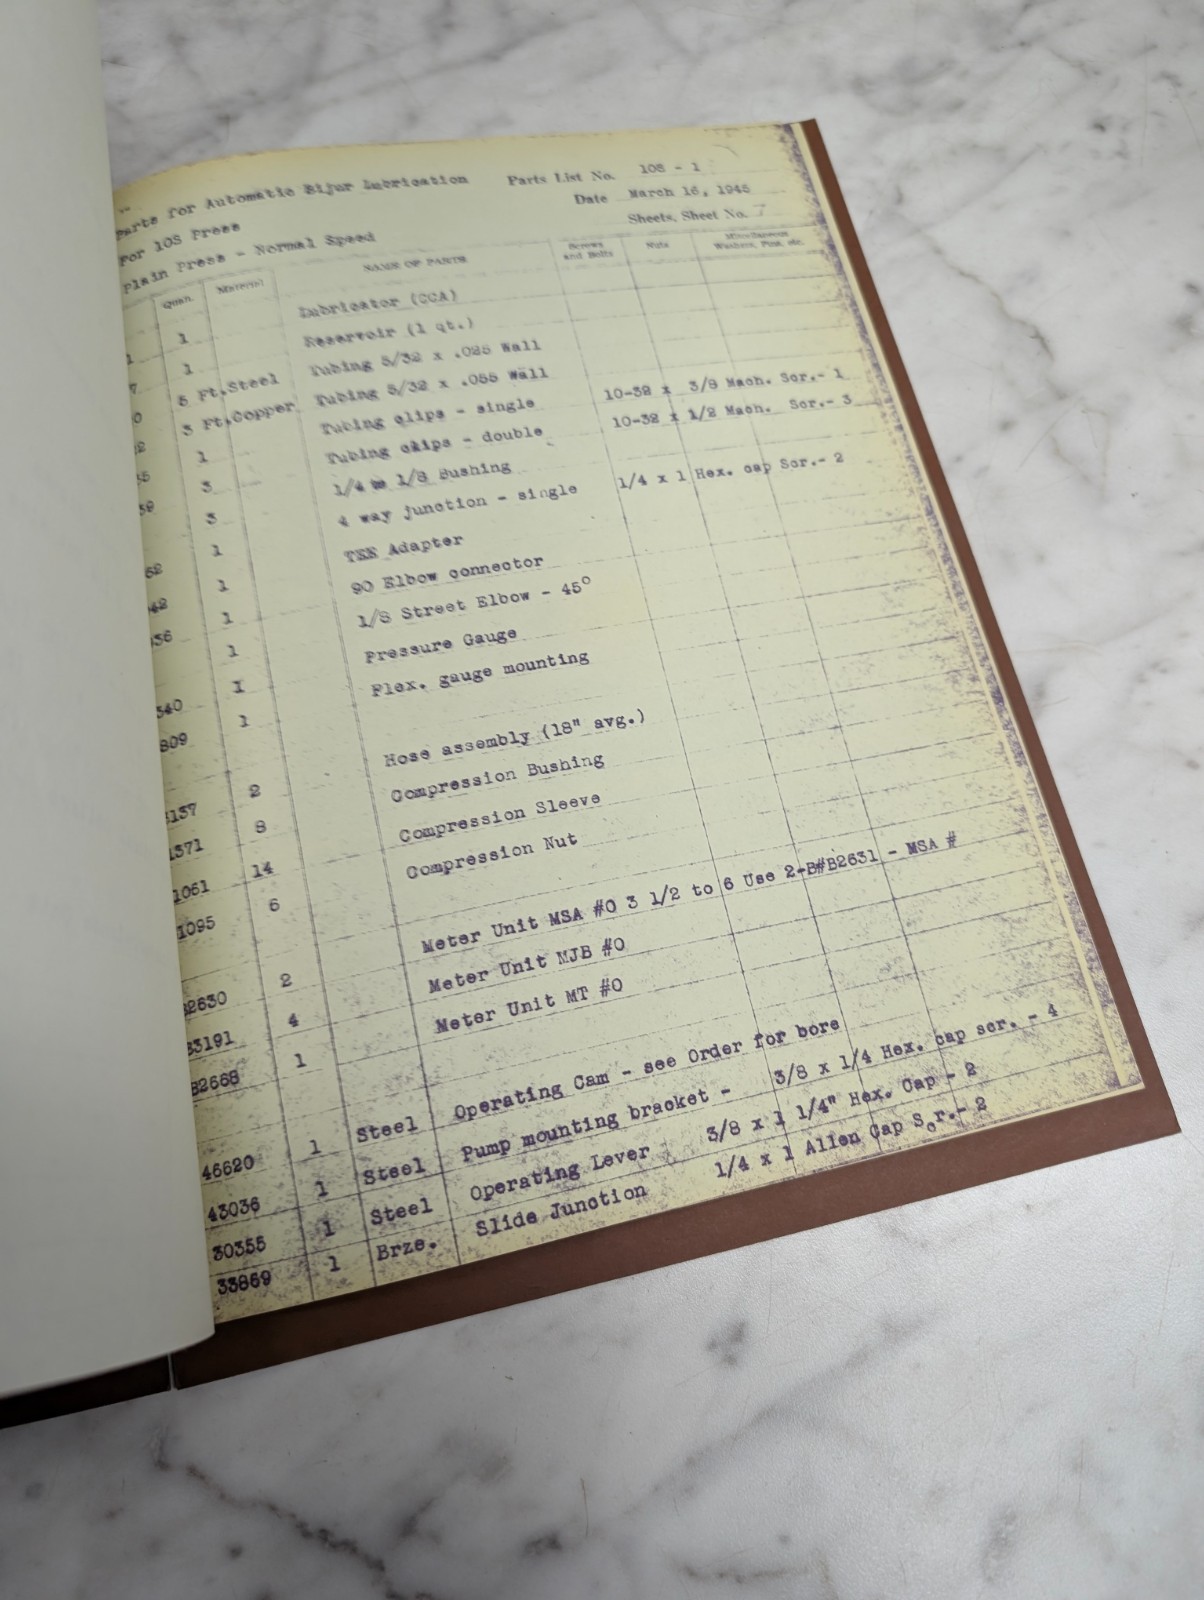 Parts for Automatic Bijur Lubrication Parts List No. 108 - 1
For 10S Press Date March 16, 1945
Plain Press - Normal Speed Sheets, Sheet No. 7
Quan. Material NAME OF PARTS Screws and Bolts Nuts Miscellaneous Washers, Pins, etc.
1 Lubricator (CCA)
1 Reservoir (1 qt.)
5 Ft. Steel Tubing 5/32 x .025 Wall
3 Ft. Copper Tubing 5/32 x .055 Wall
1 Tubing clips - single 10-32 x 3/8 Mach. Scr.- 1
3 Tubing clips - double 10-32 x 1/2 Mach. Scr.- 3
3 1/4 to 1/8 Bushing
1 4 way junction - single 1/4 x 1 Hex. cap Scr.- 2
1 TEE Adapter
1 90 Elbow connector
1 1/8 Street Elbow - 45°
1 Pressure Gauge
1 Flex. gauge mounting
2 Hose assembly (18" avg.)
8 Compression Bushing
14 Compression Sleeve
6 Compression Nut
2 Meter Unit MSA #0 3 1/2 to 6 Use 2-B#B2631 - MSA #
4 Meter Unit MJB #0
B2668 1 Meter Unit MT #0
46620 1 Steel Operating Cam - see Order for bore
43036 1 Steel Pump mounting bracket - 3/8 x 1/4 Hex. cap scr. - 4
30355 1 Steel Operating Lever 3/8 x 1 1/4" Hex. Cap - 2
33869 1 Brze. Slide Junction 1/4 x 1 Allen Cap Scr.- 2